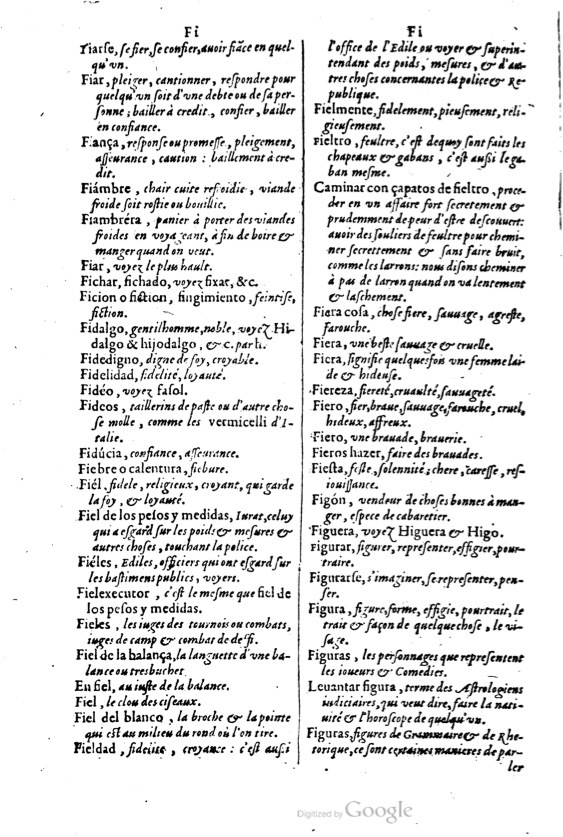 Fi
Fiarse, se fier, se confier, auoir fiãce en quel-
qu'vn.
Fiar, pleiger, cautionner, respondre pour
quelqu'vn soit d'vne debte ou de sa per-
sonne; bailler à credit, confier, bailler
en confiance.
Fiança, response ou promesse, pleigement,
asseurance, caution: baillement à cre-
dit.
Fiámbre, chair cuite refroidie, viande
froide soit rostie ou bouillie.
Fiambréra, panier à porter des viandes
froides en voyageant, à fin de boire &
manger quand on veut.
Fiar, voyez le plus hault.
Fichar, fichado, voyez fixar, &c.
Ficion o fiction, fingimiento, feintise,
fiction.
Fidalgo, gentilhomme, noble, voyez Hi-
dalgo & hijodalgo, & c. par h.
Fidedigno, digne de foy, croyable.
Fidelidad, fidelité, loyauté.
Fidéo, voyez fasol.
Fideos, taillerins de paste ou d'autre cho-
se molle, comme les vermicelli d'I-
talie.
Fidúcia, confiance, asseurance.
Fiebre o calentura, fiebure.
Fiél, fidele, religieux, croyant, qui garde
la foy, & loyauté.
Fiel de los pesos y medidas, Iurat, celuy
qui a esgard sur les poids & mesures &
autres choses, touchant la police.
Fiéles, Ediles, officiers qui ont esgard sur
les bastimens publics, voyers.
Fielexecutor, c'est le mesme que fiel de
los pesos y medidas.
Fieles, les iuges des tournois ou combats,
iuges de camp & combat de deffi.
Fiel de la balança, la languette d'vne ba-
lance ou tresbuchet.
En fiel, au iuste de la balance.
Fiel, le clou des ciseaux.
Fiel del blanco, la broche & la pointe
qui est au milieu du rond où l'on tire.
Fieldad, fidelité, croyance: c'est aussi
Fi
l'office de l'Edile ou voyer & superin-
tendant des poids, mesures, & d'au-
tres choses concernantes la police & Re-
publique.
Fielmente, fidelement, pieusement, reli-
gieusement.
Fieltro, feultre, c'est dequoy sont faits les
chapeaux & gabans, c'est aussi le ga-
ban mesme.
Caminar con çapatos de fieltro, proce-
der en vn affaire fort secretement &
prudemment de peur d'estre descouuert:
auoir des souliers de feultre pour chemi-
ner secrettement & sans faire bruit,
comme les larrons: nous disons cheminer
à pas de larron quand on va lentement
& laschement.
Fiera cosa, chose fiere, sauuage, agreste,
farouche.
Fiera, vne beste sauuage & cruelle.
Fiera, signifie quelquesfois vne femme lai-
de & hideuse.
Fiereza, fiereté, cruaulté, sauuageté.
Fiero, fier, braue, sauuage, farouche, cruel,
hideux, affreux.
Fiero, vne brauade, brauerie.
Fieros hazer, faire des brauades.
Fiesta, feste, solennité; chere, caresse, res-
iouissance.
Figón, vendeur de choses bonnes à man-
ger, espece de cabaretier.
Figuera, voyez Higuera & Higo.
Figurar, figurer, representer, effigier, pour-
traire.
Figurarse, s'imaginer, se representer, pen-
ser.
Figura, figure, forme, effigie, pourtrait, le
trait & façon de quelque chose, le vi-
sage.
Figuras, les personnages que representent
les ioueurs & Comedies.
Leuantar figura, terme des Astrologiens
iudiciaires, qui veut dire, faire la nati-
uité & l'horoscope de quelqu'vn.
Figuras, figures de Grammaire & de Rhe-
torique, ce sont certaines manieres de par-
ler
Digitized by Google